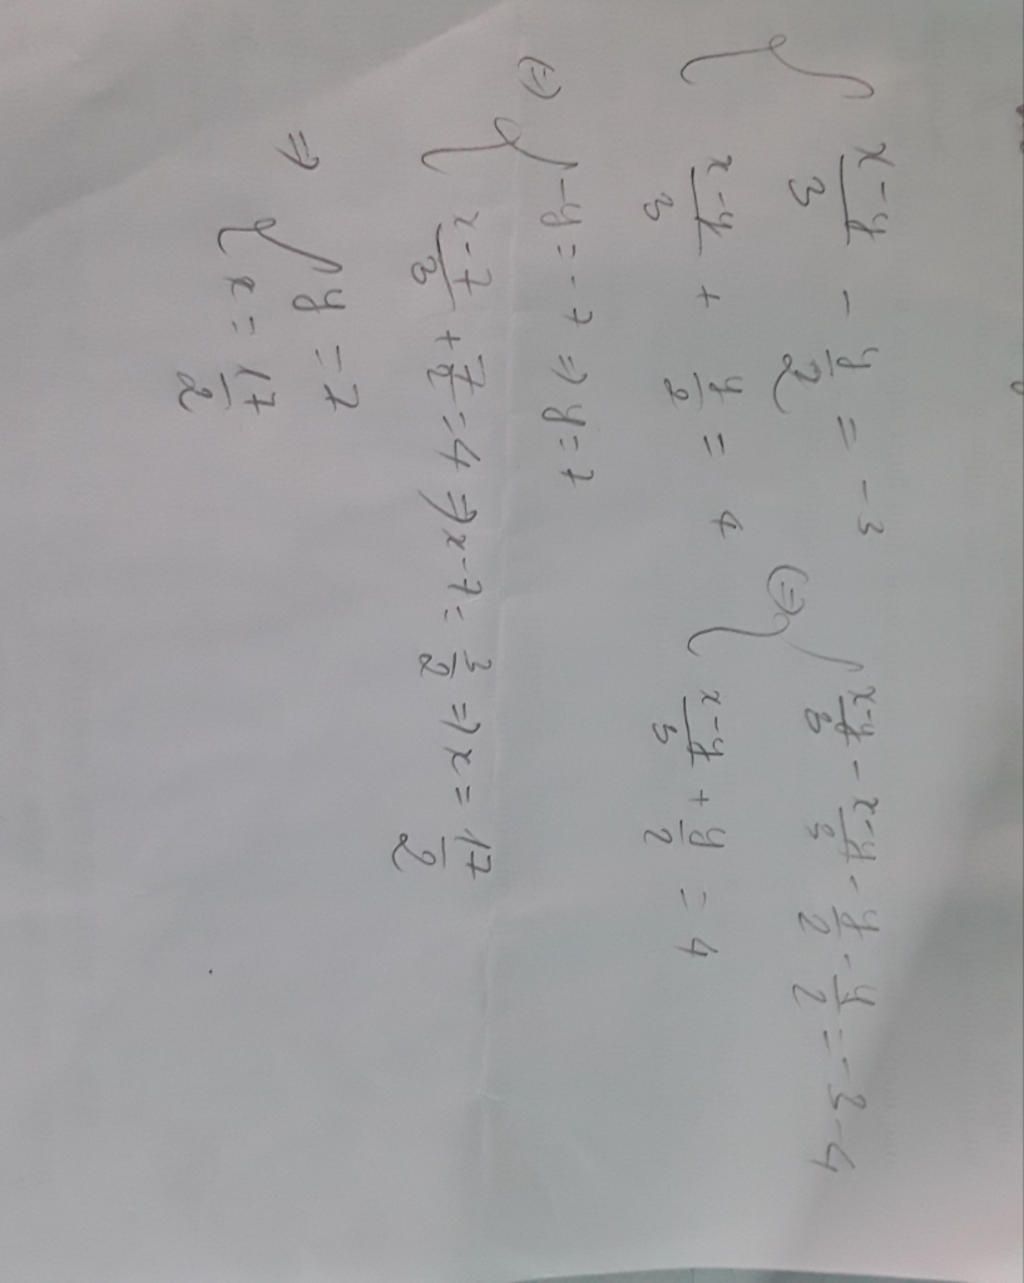 { \frac{x-y}{3} - \frac{y}{2} = -3
{ \frac{x-y}{3} + \frac{y}{2} = 4
(=) { \frac{x-y}{3} - \frac{x-y}{3} - \frac{y}{2} - \frac{y}{2} = -3-4
{ \frac{x-y}{3} + \frac{y}{2} = 4
(=) { -y = -7 => y = 7
{ \frac{x-7}{3} + \frac{7}{2} = 4 => x-7 = \frac{3}{2} => x = \frac{17}{2}
=> { y = 7
{ x = \frac{17}{2}